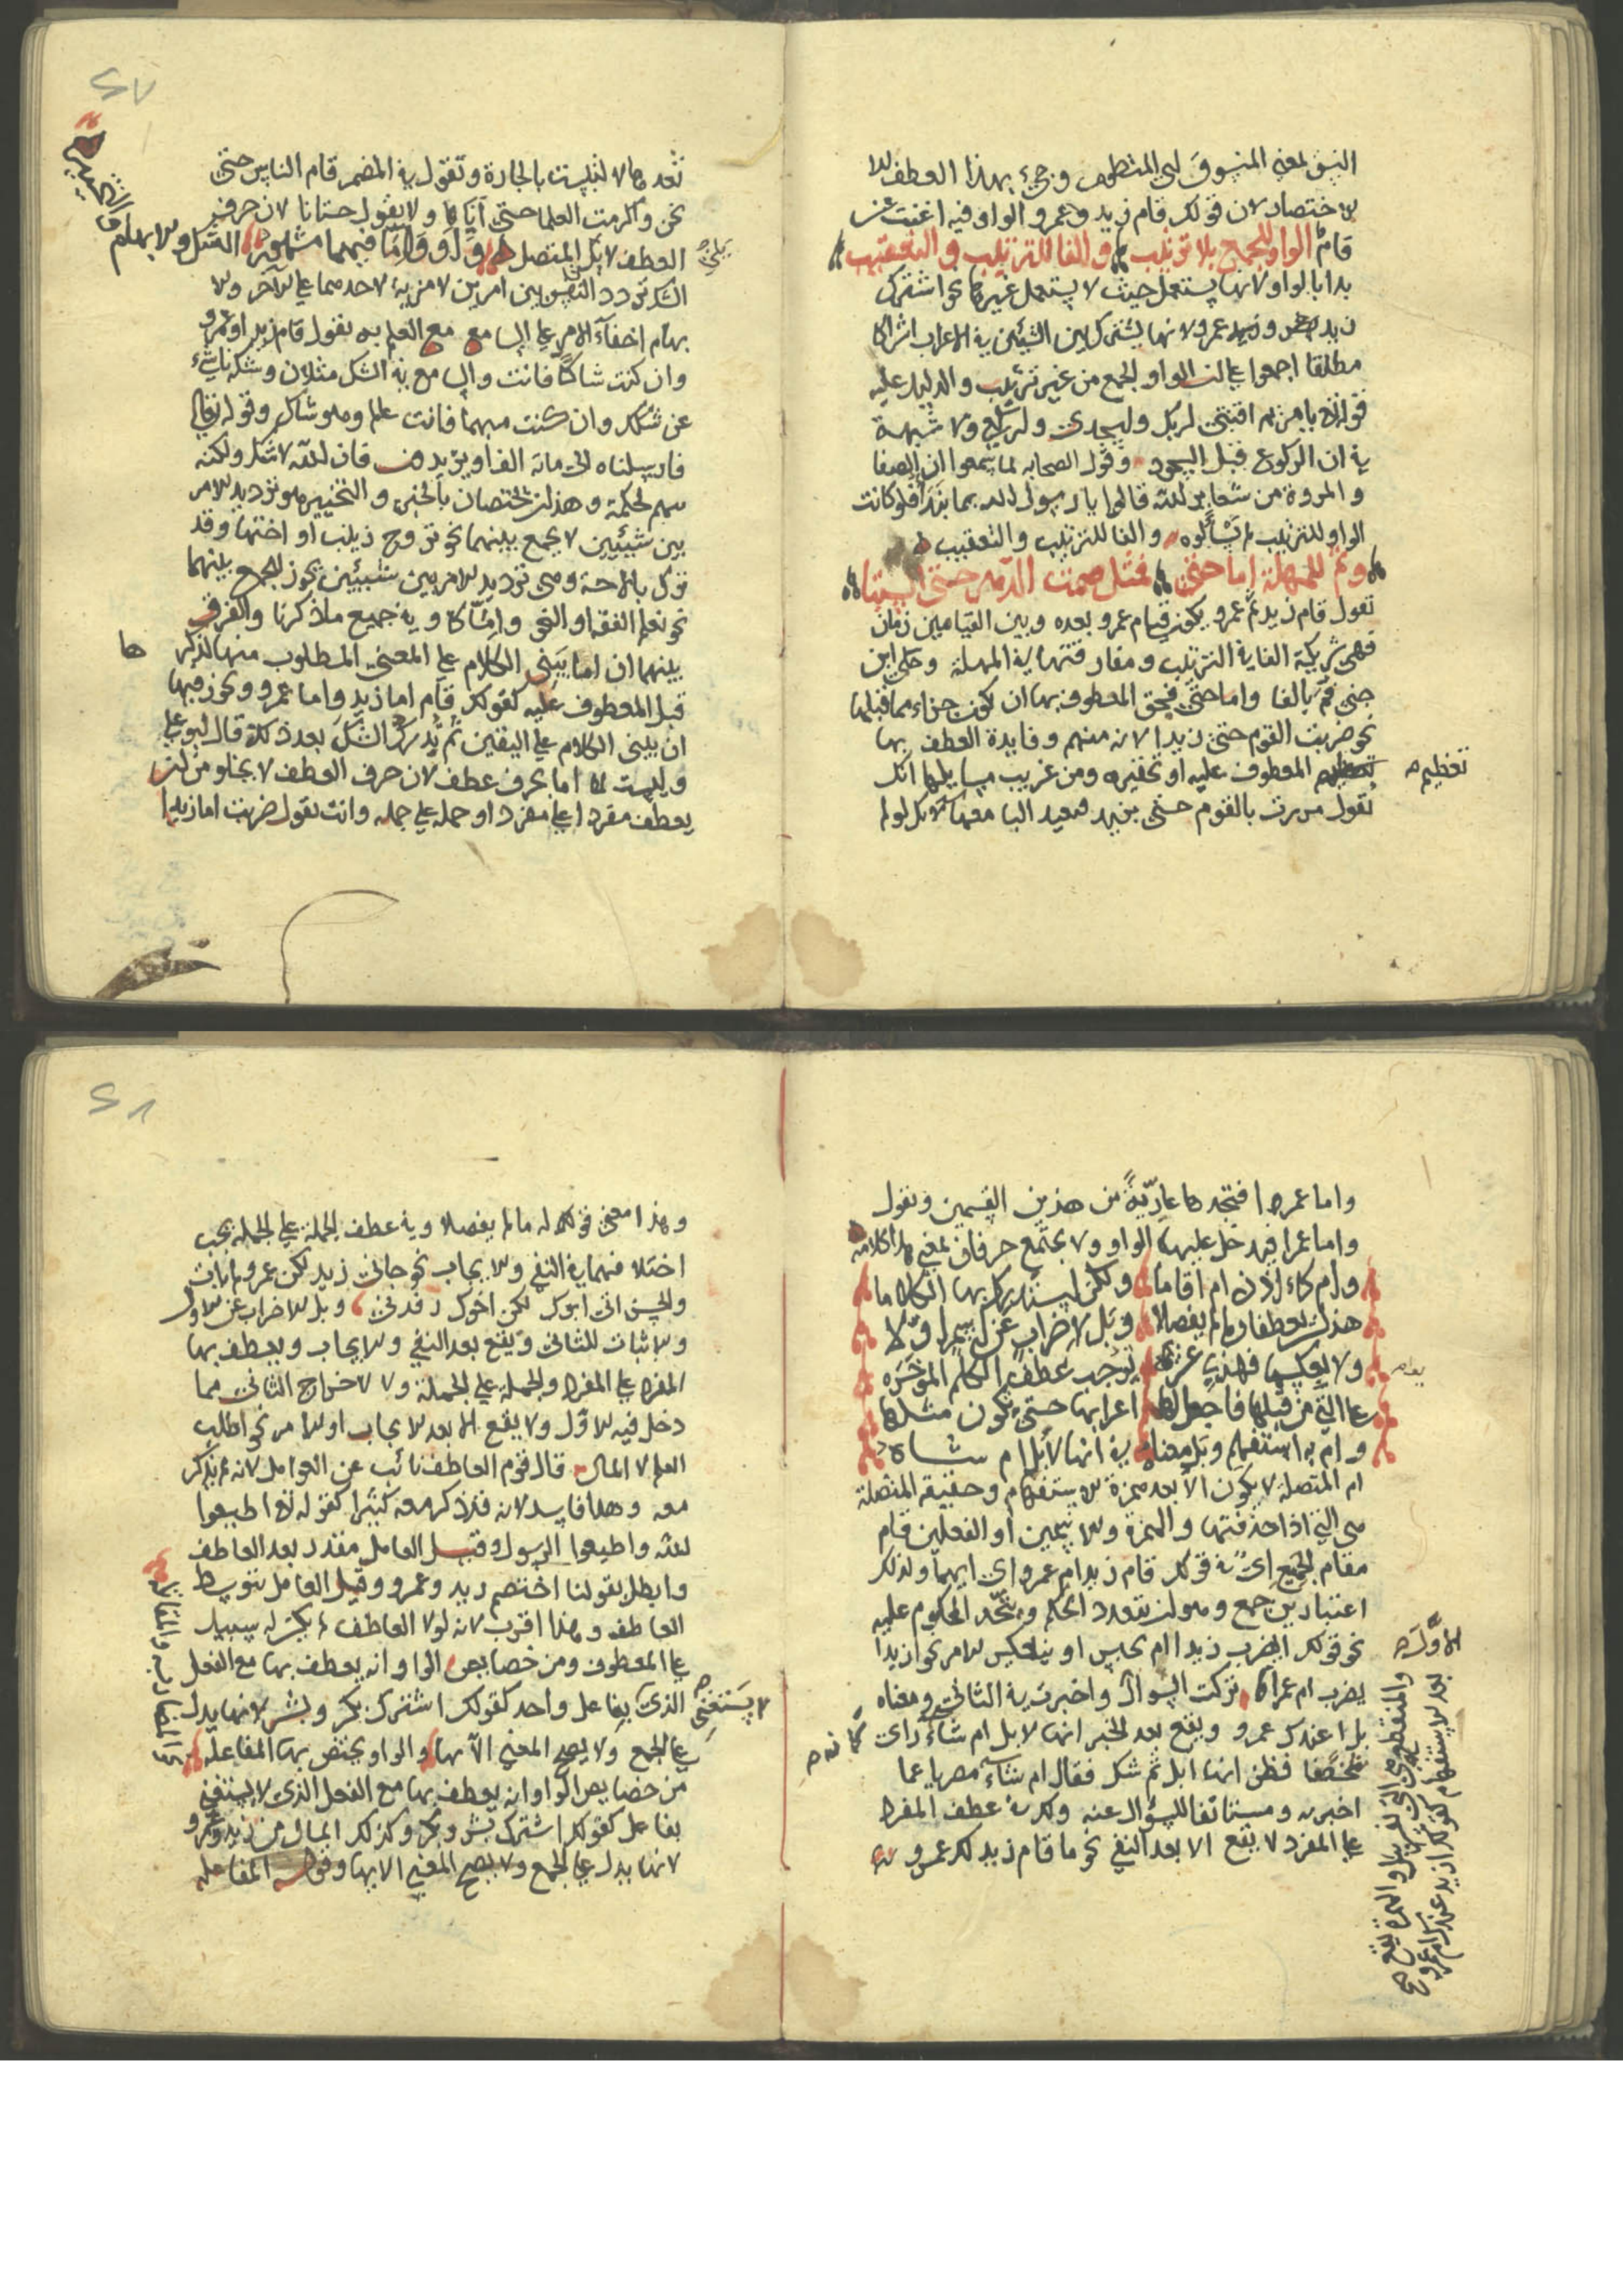 النسق بمعنى المنسوق اي المنظوم وجيء بهذا العطف
للاختصار لان قولك قام زيد وعمرو الواو فيه اغنت عن
قام الواو للجمع بلا ترتيب والفا للترتيب والتعقيب
بدا بالواو لانها يستعمل حيث لا يستعمل غيرها نحو اشترك
زيد وعمرو ولانها يشترك بين الشيئين في الاعراب اشراكا
مطلقا اجمعوا على ان الواو للجمع من غير ترتيب والدليل عليه
قوله يا مريم اقنتي لربك واسجدي واركعي ولا شبهة
في ان الركوع قبل السجود وقول الصحابه لما سمعوا ان الصفا
والمروة من شعاير الله قالوا يا رسول الله بما نبدا فلو كانت
الواو للترتيب لم يسألوه والفا للترتيب والتعقيب
وثم للمهلة اما حتى فمثل صمت الدهر حتى السبتا
تقول قام زيد ثم عمرو يكون قيام عمرو بعده وبين القيامين زمان
فهي شريكة الفا في الترتيب ومفارقتها في المهلة وحكى ابن
جنى فم بالفا واما حتى فحق المعطوف بها ان يكون جزاء مما قبلها
نحو ضربت القوم حتى زيدا لانه منهم وفايدة العطف بها
تعظيم المعطوف عليه او تحقيره ومن غريب مسايلها انك
تعظيم
تقول مررت بالقوم حتى بزيد فتعيد البا معها لانك لو لم
٢٧
تعدها لالتبست بالجارة وتقول في المضمر قام الناس حتى
نحن واكرمت العلما حتى اياك ولا يقول حتانا لان حرف
العطف لا يلى المتصل واو واما فيهما مشهوره الشك والابهام
الشك تردد النفس بين امرين لا مزية لاحدهما على الاخر والا
بهام اخفآء الامر على السامع مع العلم به تقول قام زيد او عمرو
وان كنت شاكا فانت والسامع في الشك مثلان وشكه ناشيء
عن شكك وان كنت مبهما فانت عالم وهو شاك وقوله تعالى
فارسلناه الى مائة الف او يزيدون فان الله لا يشك ولكنه
مبهم لحكمة وهذان يختصان بالخبر والتخيير هو ترديد الامر
بين شيئين لا يجمع بينهما نحو تزوج زينب او اختها وقد
تزل بالاباحة وهي ترديد الامر بين شيئين يجوز الجمع بينهما
نحو تعلم الفقه او النحو واما كاو في جميع ما ذكرنا والفرق
بينهما ان اما يبنى الكلام على المعنى المطلوب منها لذكرها
قبل المعطوف عليه كقولك قام اما زيد واما عمرو ويجوز فيها
ان يبنى الكلام على اليقين ثم يدرك الشك بعد ذلك قال ابو علي
وليست اما بحرف عطف لان حرف العطف لا يخلو من ان
يعطف مفردا على مفرد او جمله على جمله وانت تقول ضربت اما زيدا
واما عمرا فتجدها عارية من هذين القسمين وتقول
واما عمرا فتدخل عليها الواو ولا يجتمع حرفان بمعنى هذا كلامه
وام كاء اذن ام اقاما ولكن ليستدرك بها الكلام ما
هذان يعطفا ولم يفصلا وبل لاضراب عن اسم اولا
ولا بعكسها فهذي عشرة يوجب عطف الكلم الموخره
على التي من قبلها فاجعل لها اعرابها حتى يكون مثلها
وام به استفهم وبل معناه في انها لابل ام شاه
ام المتصلة لا يكون الا بعد همزة الاستفهام وحقيقة المتصلة
هي التي اذا حذفتها والهمزة والاسمين او الفعلين قام
مقام الجميع اي في قولك قام زيد ام عمرو اي ايهما ولذلك
اعتبار بن جمع وهو ان يتعدد الحكم ويتحد المحكوم عليه
نحو قولك ايضرب زيدا ام يحبس او ينعكس الامر نحو ازيدا
يضرب ام عمرا تركت السؤال واخبرت في الثاني ومعناه
بل اعندك عمرو ويقع بعد الخبر انها لابل ام شاء راى
شخصا فظن انها ابل ثم شك فقال ام شاء مضربا عما
اخبر به ومستانفا للسؤال عنه ولكن في عطف المفرد
على المفرد لا يقع الا بعد النفي نحو ما قام زيد لكن عمرو
الاول
٢٨
وهذا معنى قوله ما لم يفصلا وفي عطف الجملة على الجملة يجب
اختلافهما في النفي والايجاب نحو جاني زيد لكن عمرو لم يات
والحسن اتى ابوك لكن اخوك رفدنى وبل للاضراب عن الاول
والاثبات للثاني ويقع بعد النفي والايجاب ويعطف بها
المفرد على المفرد والجملة على الجملة ولا لاخراج الثاني مما
دخل فيه الاول ولا يقع الا بعد الايجاب او الامر نحو اطلب
العلم لا المال قال قوم العاطف نائب عن العوامل لانه لم يذكر
معه وهذا فاسد لانه قد ذكر معه كثيرا كقوله تع اطيعوا
الله واطيعوا الرسول وقيل العامل مقدر بعد العاطف
وابطل بقولنا اختصم زيد وعمرو وقيل العامل بتوسط
العاطف وهذا اقرب لانه لولا العاطف لم يكن له سبيل
على المعطوف ومن خصايص الواو انه يعطف بها مع الفعل
لا يستغني
الذي بفاعل واحد كقولك اشترك بكر وبشر لانها يدل
على الجمع ولا يصح المعنى الا بها والواو يختص بها المفاعله
من خصايص الواو ان يعطف بها مع الفعل الذي لا يستغني
بفاعل كقولك اشترك بشر وبكر وكذلك المال من زيد وعمرو
لانها يدل على الجمع ولا يصح المعنى الا بها وقوله المفاعله